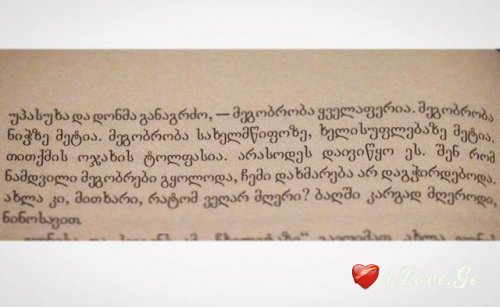 უპასუხა და დონმა განაგრძო, — მეგობრობა ყველაფერია. მეგობრობა
ნიჭზე მეტია. მეგობრობა სახელმწიფოზე, ხელისუფლებაზე მეტია,
თითქმის ოჯახის ტოლფასია. არასოდეს დაივიწყო ეს. შენ რომ
ნამდვილი მეგობრები გყოლოდა, ჩემი დახმარება არ დაგჭირდებოდა,
ახლა კი, მითხარი, რატომ ვეღარ მღერი? ბაღში კარგად მღეროდი,
ნინოსავით.
iLove.Ge